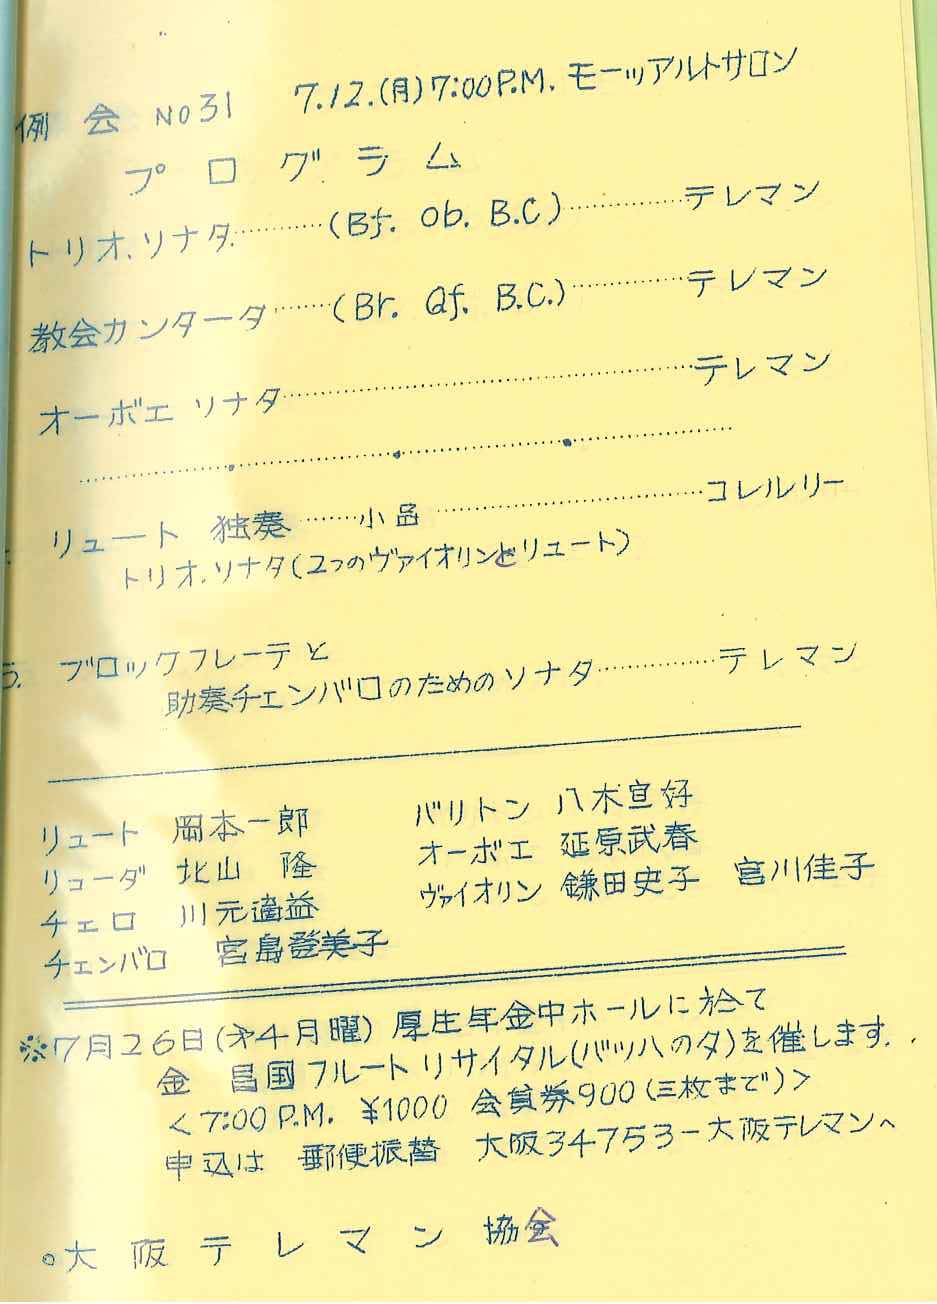 例会 NO31 7.12.(月)7:00P.M. モーツアルトサロン
プログラム
トリオ.ソナタ............(Bf. Ob. B.C)...............テレマン
教会カンタータ......(Br. Qf. B.C.)...............テレマン
オーボエ ソナタ........................テレマン
リュート 独奏......小品........................コレルリー
トリオ.ソナタ(2つのヴァイオリンとリュート)
5. ブロックフレーテと
助奏チェンバロのためのソナタ...............テレマン
リュート 岡本一郎 バリトン 八木宣好
リコーダ 北山 隆 オーボエ 延原武春
チェロ 川元適益 ヴァイオリン 鎌田史子 宮川佳子
チェンバロ 宮島登美子
※7月26日(才4月曜) 厚生年金中ホールに於て
金 昌国フルートリサイタル(バッハの夕)を催します.
<7:00P.M. ¥1000 会員券900(三枚まで)>
申込は 郵便振替 大阪34753-大阪テレマンへ
○大阪テレマン協会